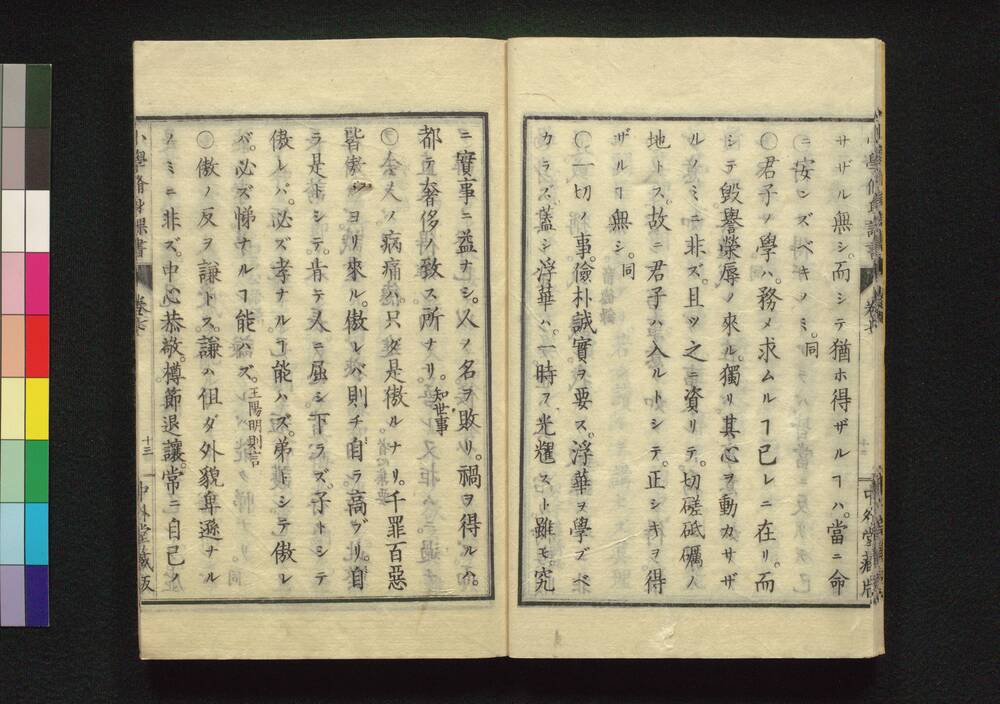 サザル無シ。而シテ猶ホ得ザルヿハ。當ニ命
ニ安ンズベキノミ。同
〇君子ノ學ハ。務メ求ムルヿ已レニ在リ。而
シテ毀譽榮辱ノ來ル。獨リ其心ヲ動カサザ
ルノミニ非ズ。且ツ之ニ資リテ。切磋砥礪ノ
地トス。故ニ君子ハ入ルトシテ。正シキヲ得
ザルヿ無シ。同
〇一切ノ事。儉朴誠實ヲ要ス。浮華ヲ學ブベ
カラズ。蓋シ浮華ハ。一時ス光耀スト雖モ。究
中外堂藏版
ニ實事ニ益ナシ。人ノ名ヲ敗リ。禍ヲ得ルハ。
都テ奢侈ノ致ス所ナリ。知世事
〇今人ノ病痛ハ。只ダ是傲ルナリ。千罪百惡
皆傲ルヨリ來ル。傲レバ則チ自ラ高ブリ。自
ラ是トシテ。肯テ人ニ屈シ下ラズ。子トシテ
傲レバ。必ズ孝ナルヿ能ハズ。弟トシテ傲レ
バ。必ズ悌ナルヿ能ハズ。王陽明則言
〇傲ノ反ヲ謙トス。謙ハ但ダ外貌卑遜ナル
ノミニ非ズ。中心恭敬。樽節退讓。常ニ自己ノ
小學脩身課書
卷七
十三
中外堂藏版